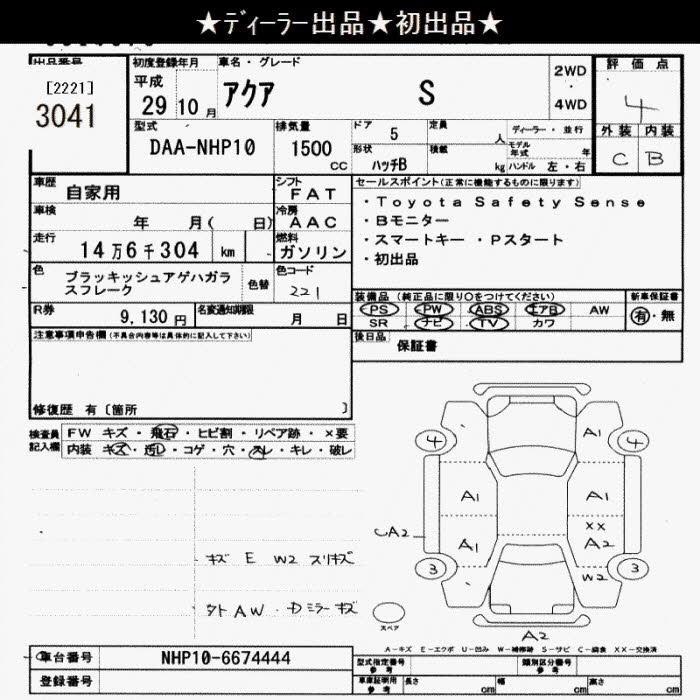 ★ディーラー出品★初出品★
出品番号 初度登録年月 車名・グレード 評価点
[2221] 平成 2WD
3041 29年10月 アクア S ・ 4
4WD
型式 排気量 ドア 5 定員 人 ディーラー・並行 外装 内装
DAA-NHP10 1500 cc 形状 ハッチB 積載 kg モデル年式 年 ハンドル 左・右 C B
車歴 自家用 シフト FAT セールスポイント(正常に機能するものに限ります)
車検 年 月( 日) 冷房 AAC ・Toyota Safety Sense
走行 14万6千304 km 燃料 ガソリン ・Bモニター
・スマートキー ・Pスタート
・初出品
色 ブラッキッシュアゲハガラスフレーク 色替 色コード 221
装備品(純正品に限り○をつけてください) 新車保証書
R券 9,130円 名変通知期限 月 日 PS PW ABS エアB AW 有・無
SR ナビ TV カワ
注意事項申告欄(不具合内容等は具体的に記入して下さい) 後日品 保証書
修復歴 有〔箇所 〕
検査員記入欄 FW キズ・飛石・ヒビ割・リペア跡・×要
内装 キズ・汚レ・コゲ・穴・スレ・キレ・破レ
4 A1 4
A1 A1
A2 A1 XX A2
3 W2 3
キズ E W2 スリキズ
外AW・Dミラーキズ
スペア A2
A-キズ E-エクボ U-凹み W-補修跡 S-サビ C-腐食 XX-交換済
車台番号 NHP10-6674444 型式指定番号 参考 類別区分番号 参考
登録番号 車庫証明用 参考 長さ cm 幅 cm 高さ cm